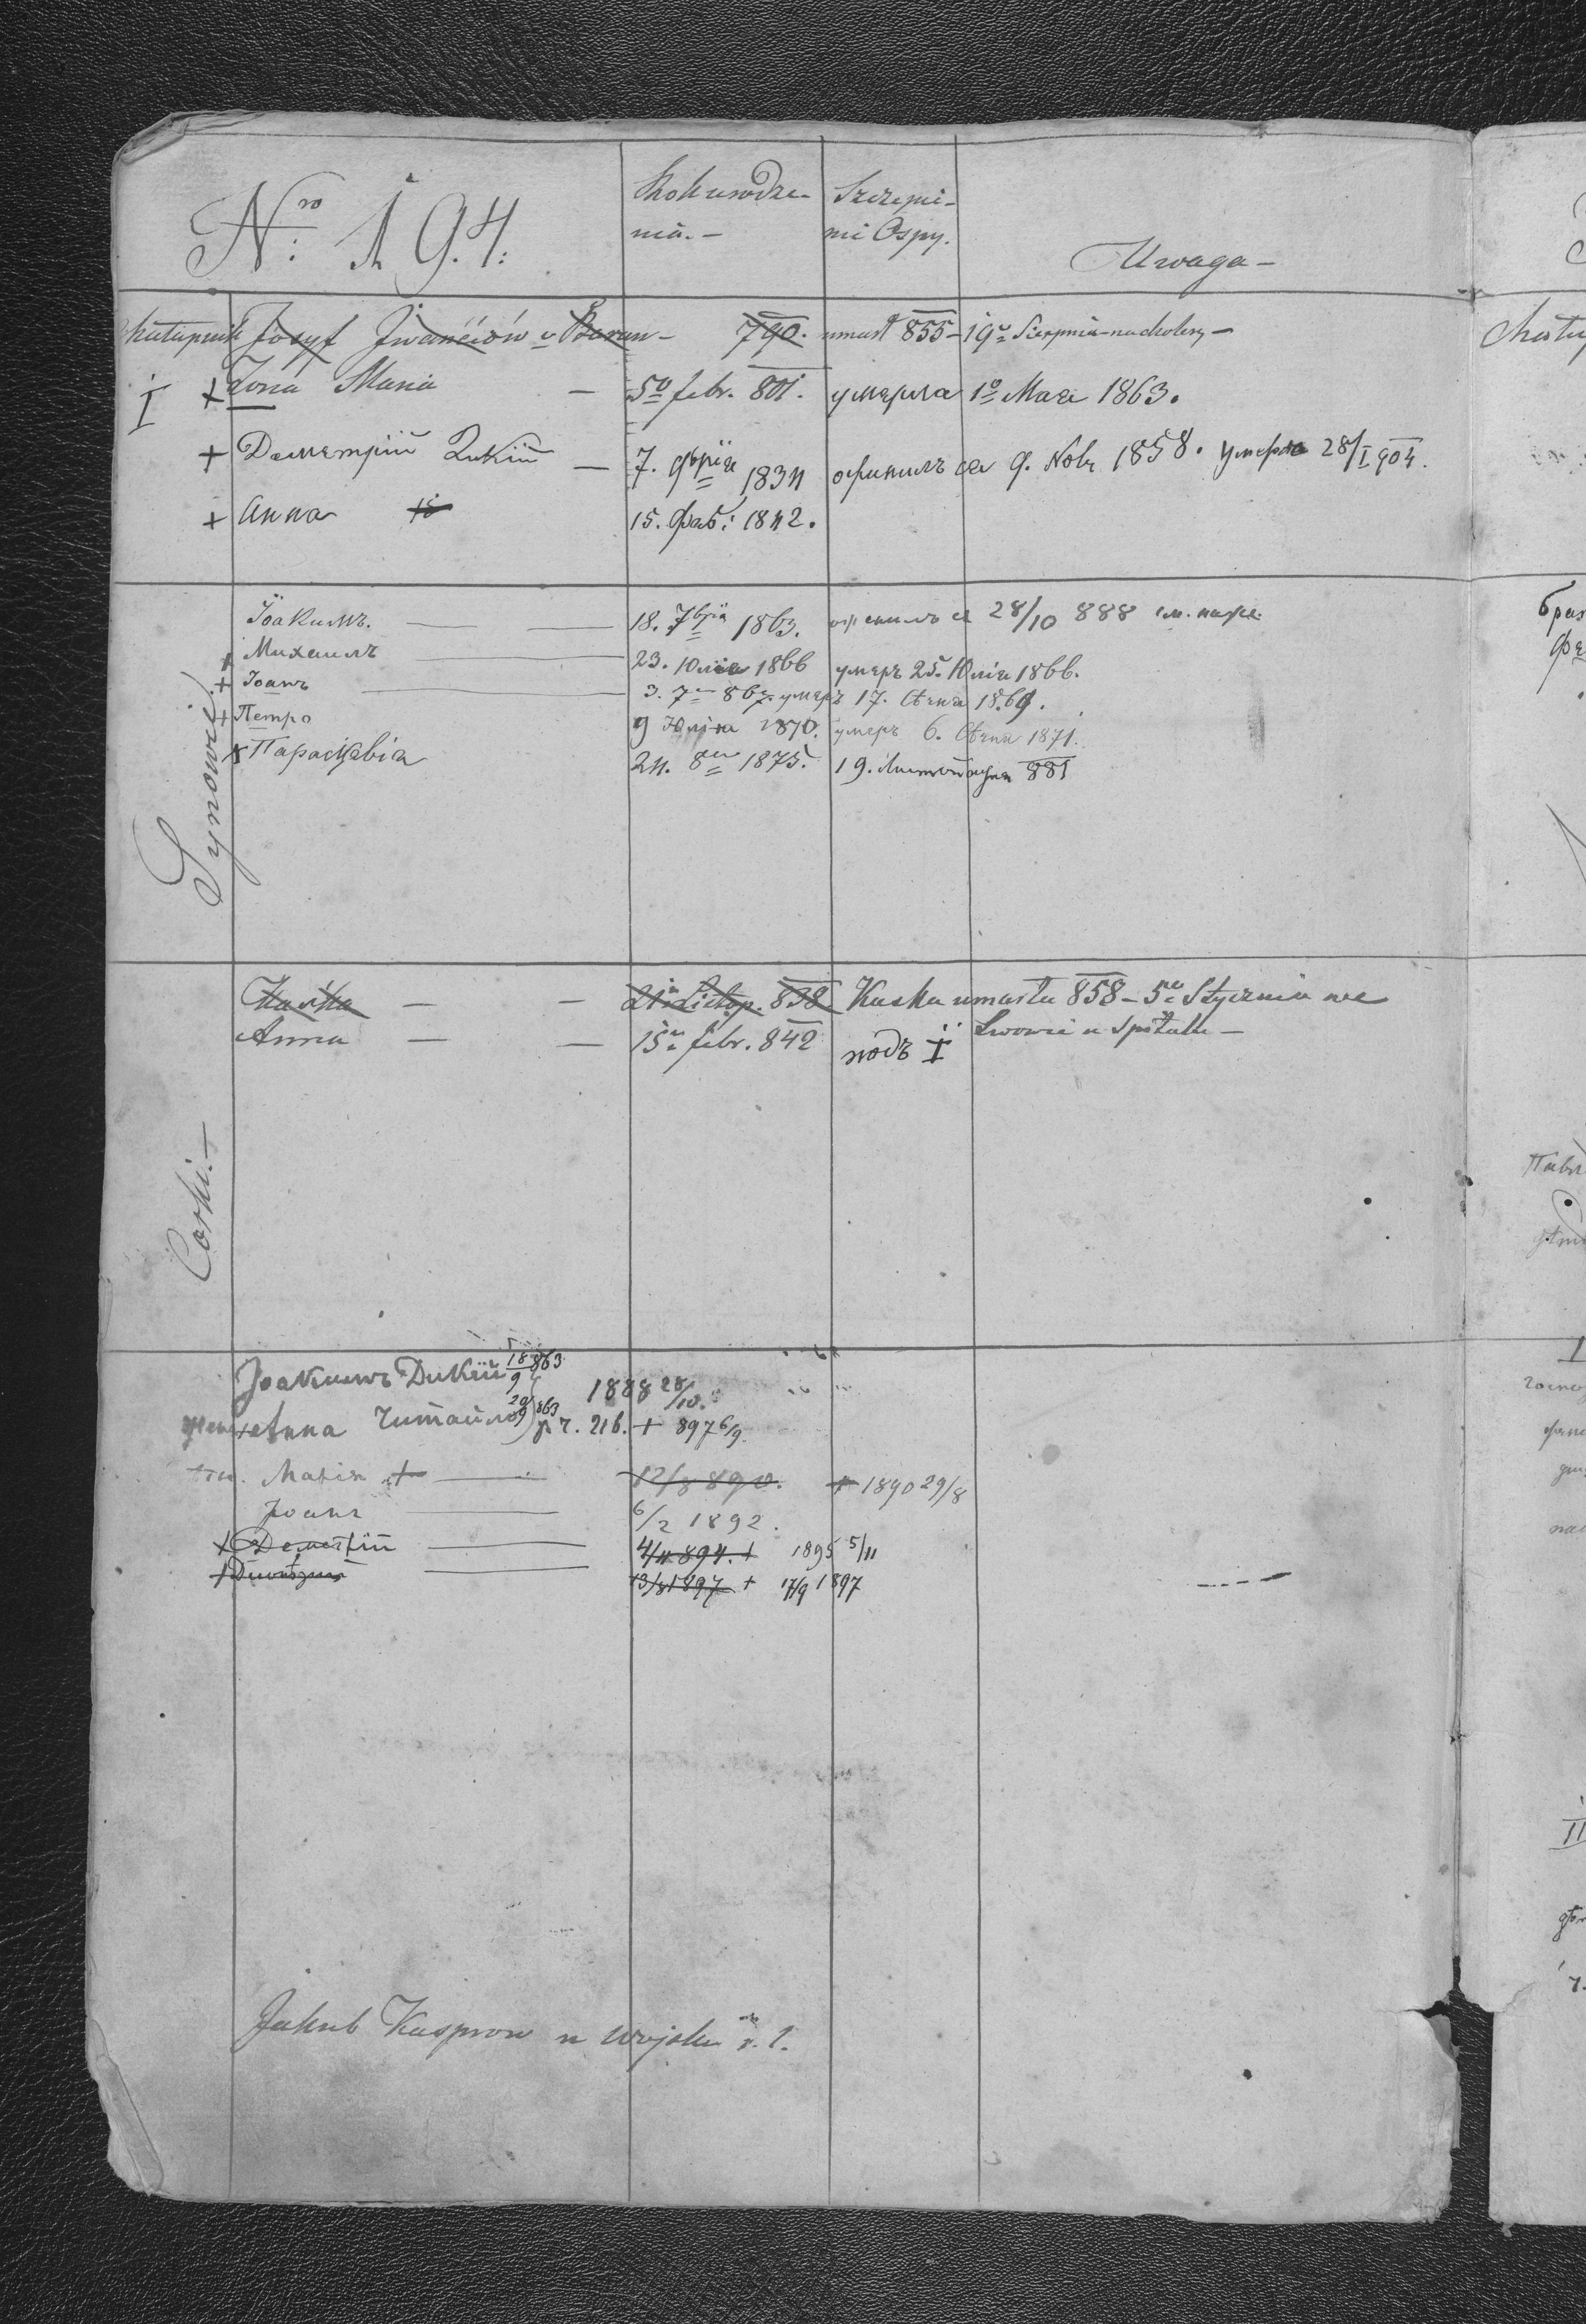 Nro: 194.
Rok urodze-
nia.-
Szczepie-
nie Ospy.
Uwaga-
Chałupnik Josyf Jwańciów v Baran - 790. umarł 855 - 19o Sierpnia na cholerę -
I + Żona Maria - 5o febr. 801. умерла 1o Мая 1863.
+ Деметрій Дикій - 7. 1834 оженилъ ся 9. Nov. 1858. умеръ 28/I 904.
+ Анна 15. Феб: 1842.
Synowie.
Іоакимъ. 18. 7брія 1863. оженилъ ся 28/10 888
+ Михаилъ 23. Юлія 1866 умеръ 25. Юлія 1866.
+ Іоанъ 3. умеръ 17. Січня 1869.
+ Петро 9 Юлія 1870. умеръ 6. Січня 1871.
+ Параскевія 24. 1875. 19. Листопада 881
Kaśka - - 21o Listop. 838. Kaska umarła 858 - 5o Stycznia we
Lwowie w Spitalu -
Anna - - 15o febr. 842 подъ I
Corki.-
Іоакимъ Дикій 18/9 863
1888 28/10.
Анна Читайло 29/9 863 ч. 216. + 897 6/9
Марія + 12/8 890. + 1890 29/8
Іоанъ 6/2 1892.
+ Деметрій 4/11 894. + 1895 5/11
+ 13/8 1897 + 17/9 1897
Jakub Kasprow w wojsku